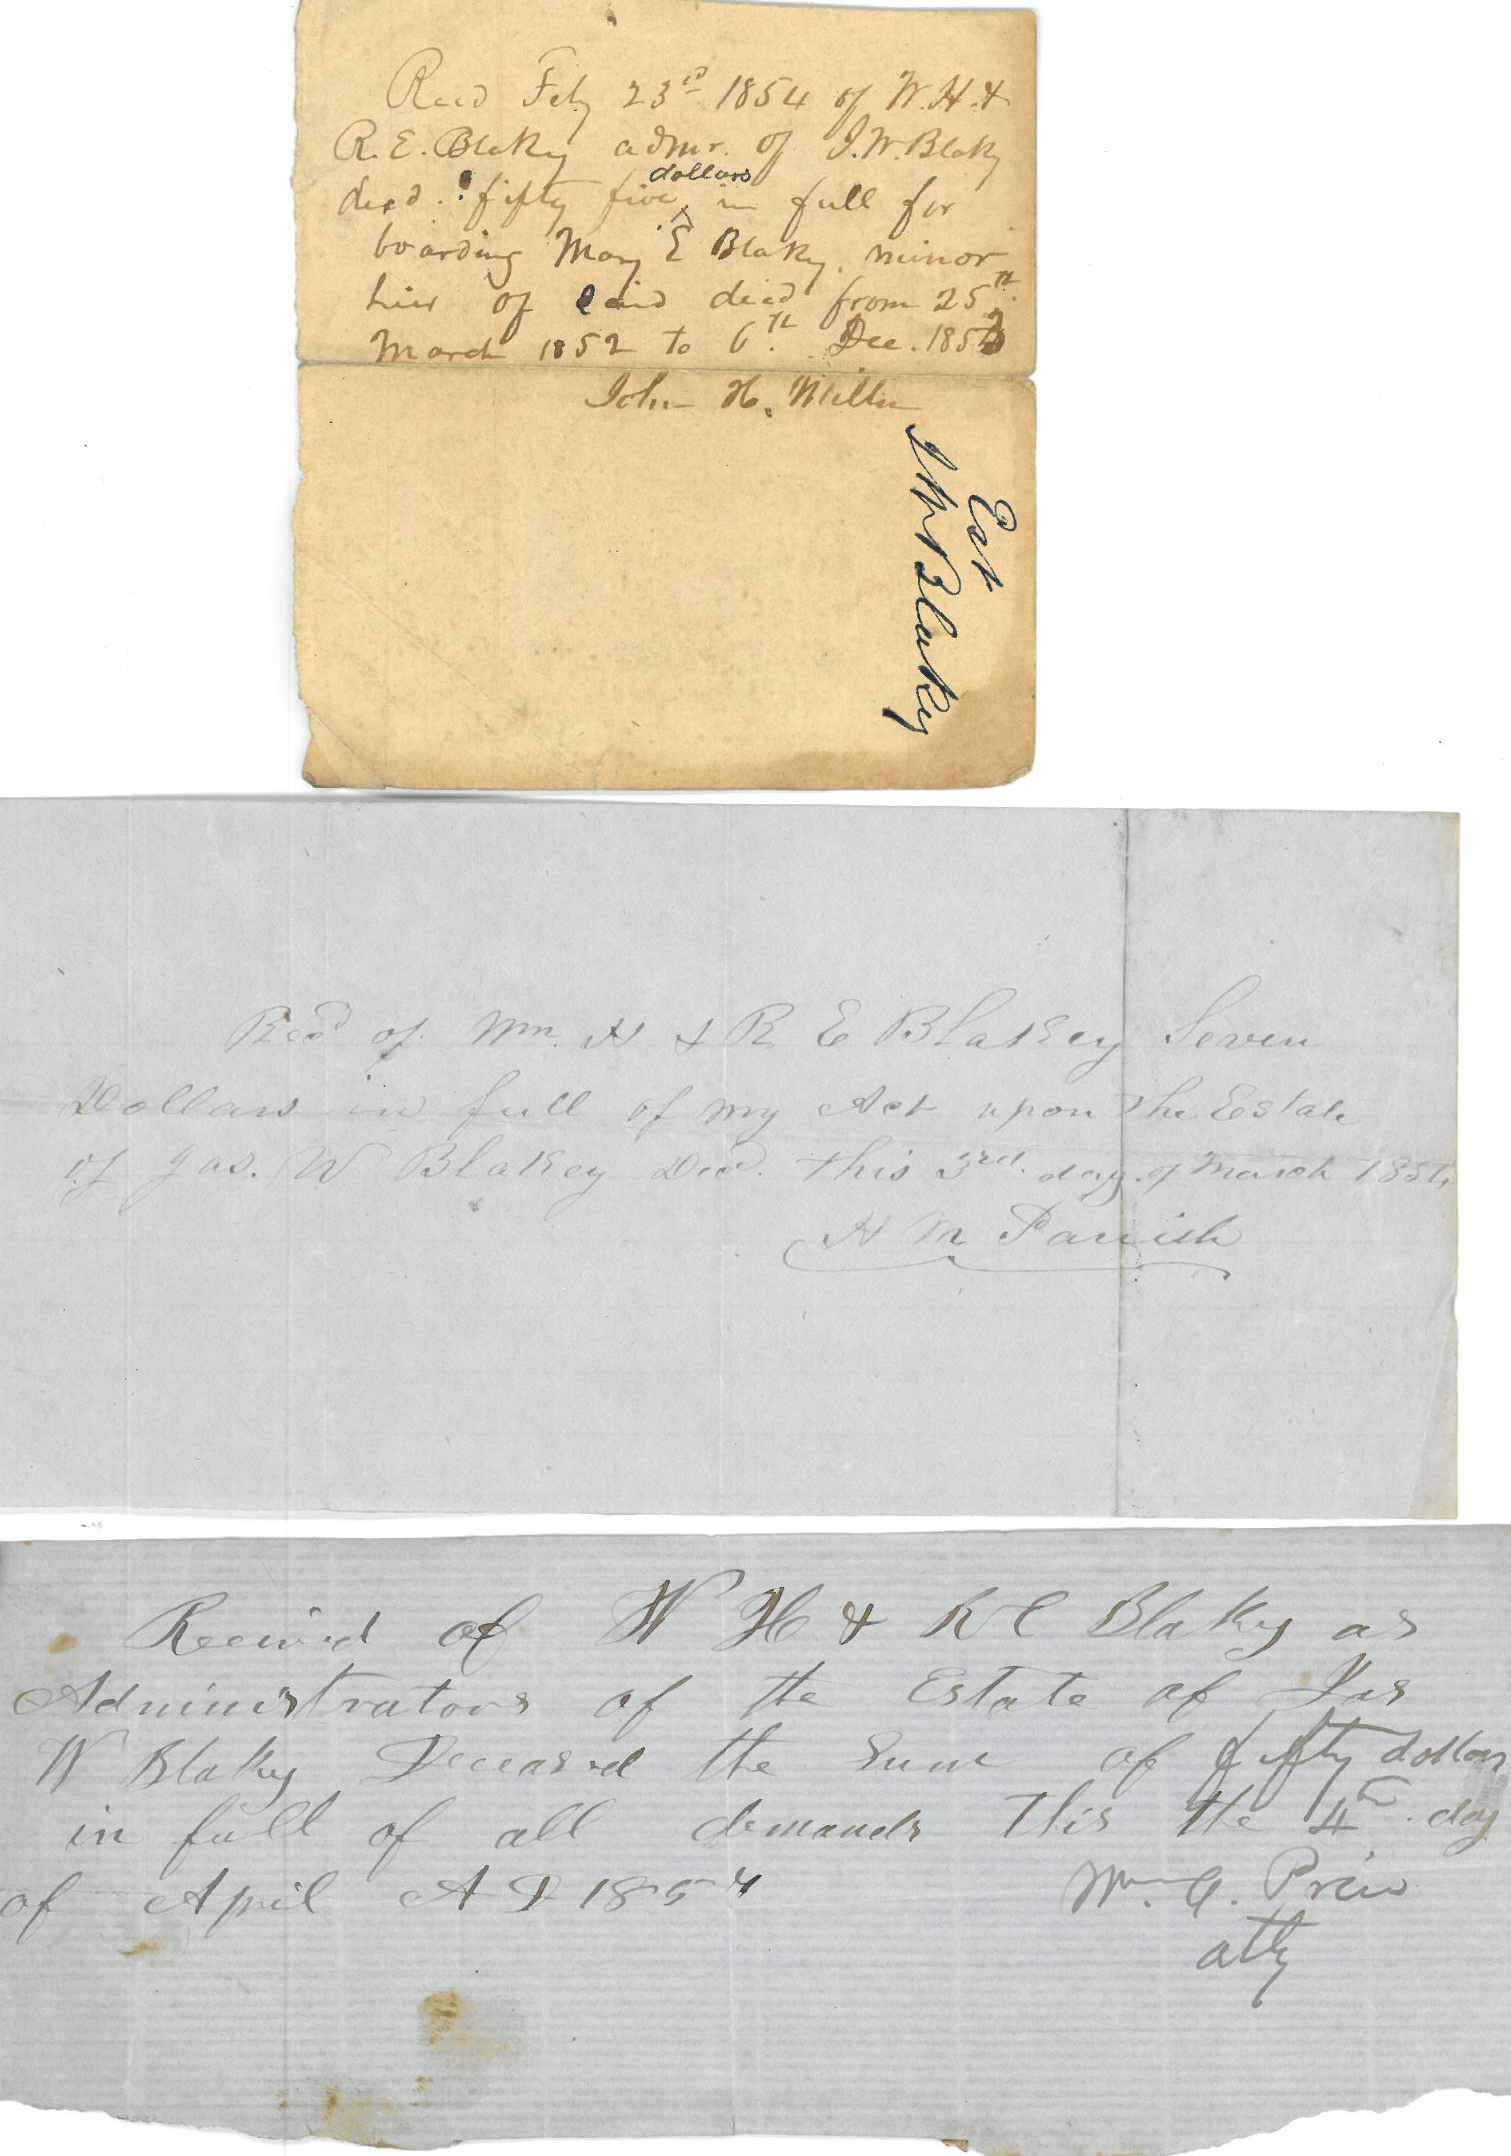 Recd Feby 23rd 1854 of W. H. &
R. E. Blakey admr. of J. W. Blaky
decd. fifty five dollars in full for
boarding Mary E Blaky. minor
hier of said decd from 25th
March 1852 to 6th. Dec. 1852
John H. Miller
Est
J W Blakey
Recd of Wm. H & R E Blakey Seven
Dollars in full of my Act upon the Estate
of Jas. W Blakey Decd. this 3rd. day of March 1854
H M Parrish
Receivd of W H & R E Blakey as
Administrators of the Estate of Jas
W Blakey Deceased the Sum of fifty dollars
in full of all demands this the 4th day
of April A D 1854
Wm. G. Price
atty